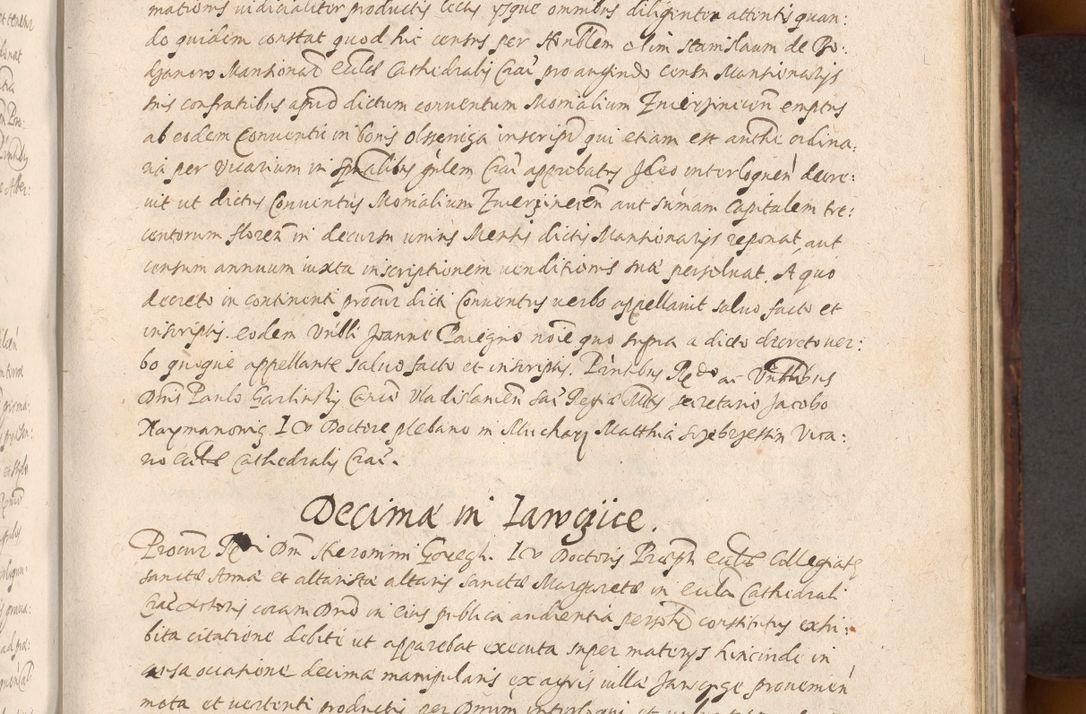 mationis iudicialiter productis lectis ysque omnibus diligenter attentis quan:
do quidem constat quod hic census per Honblem olim Stanislaum de Bo:
dzanow Mansionar Eccles Cathedralis Crac pro augendo censu Mansionarijs
suis confratibus apud dictum conuentum Monialium Zwierzinicen emptus
ab eodem Conuentu in bonis Olssenica inscript qui etiam est authe ordina:
ria per Vicarium in spualibus gnlem Crac approbatus Ideo interloquen decre:
uit ut dictus Conuentus Monialium Zwierzinecen aut summam capitalem tre:
centorum floren in decursu unius Mensis dictis Mansionarijs reponat, aut
censum annuum iuxta inscriptionem uenditionis suae persoluat. A quo
decreto in continenti procur dicti Conuentus uerbo appellauit saluo facto et
inscriptis. eodem Vnbli Joanne noie quo supra a dicto decreto uer:
bo quoque appellante saluo facto et inscriptis. Pntibus Rdo ac Vnblibus
Dnis Paulo Garlinskj Canco Vladislauien Sac Regiae Mtis secretario Jacobo
Naymanowicz I V Doctore plebano in Mucharz Matthia Szczebrzessin Vica:
rio Eccles Cathedralis Crac.
Decimae in Iawczice.
Procur Rdi Dni Hieronimi I V Doctoris Praepti Eccles Collegiate
sanctae Annae et altaristae altaris sanctae Margaretae in Eccla Cathedrali
Crac Actoris coram Dno in eius publica audientia personlr constitutus exhi:
bita citatione debite ut apparebat executa super materijs hincinde in
causa occasione decimae manipularis ex agris uillae Jawczyce prouenien
mota et uertenti productis per Dnum interloqui et